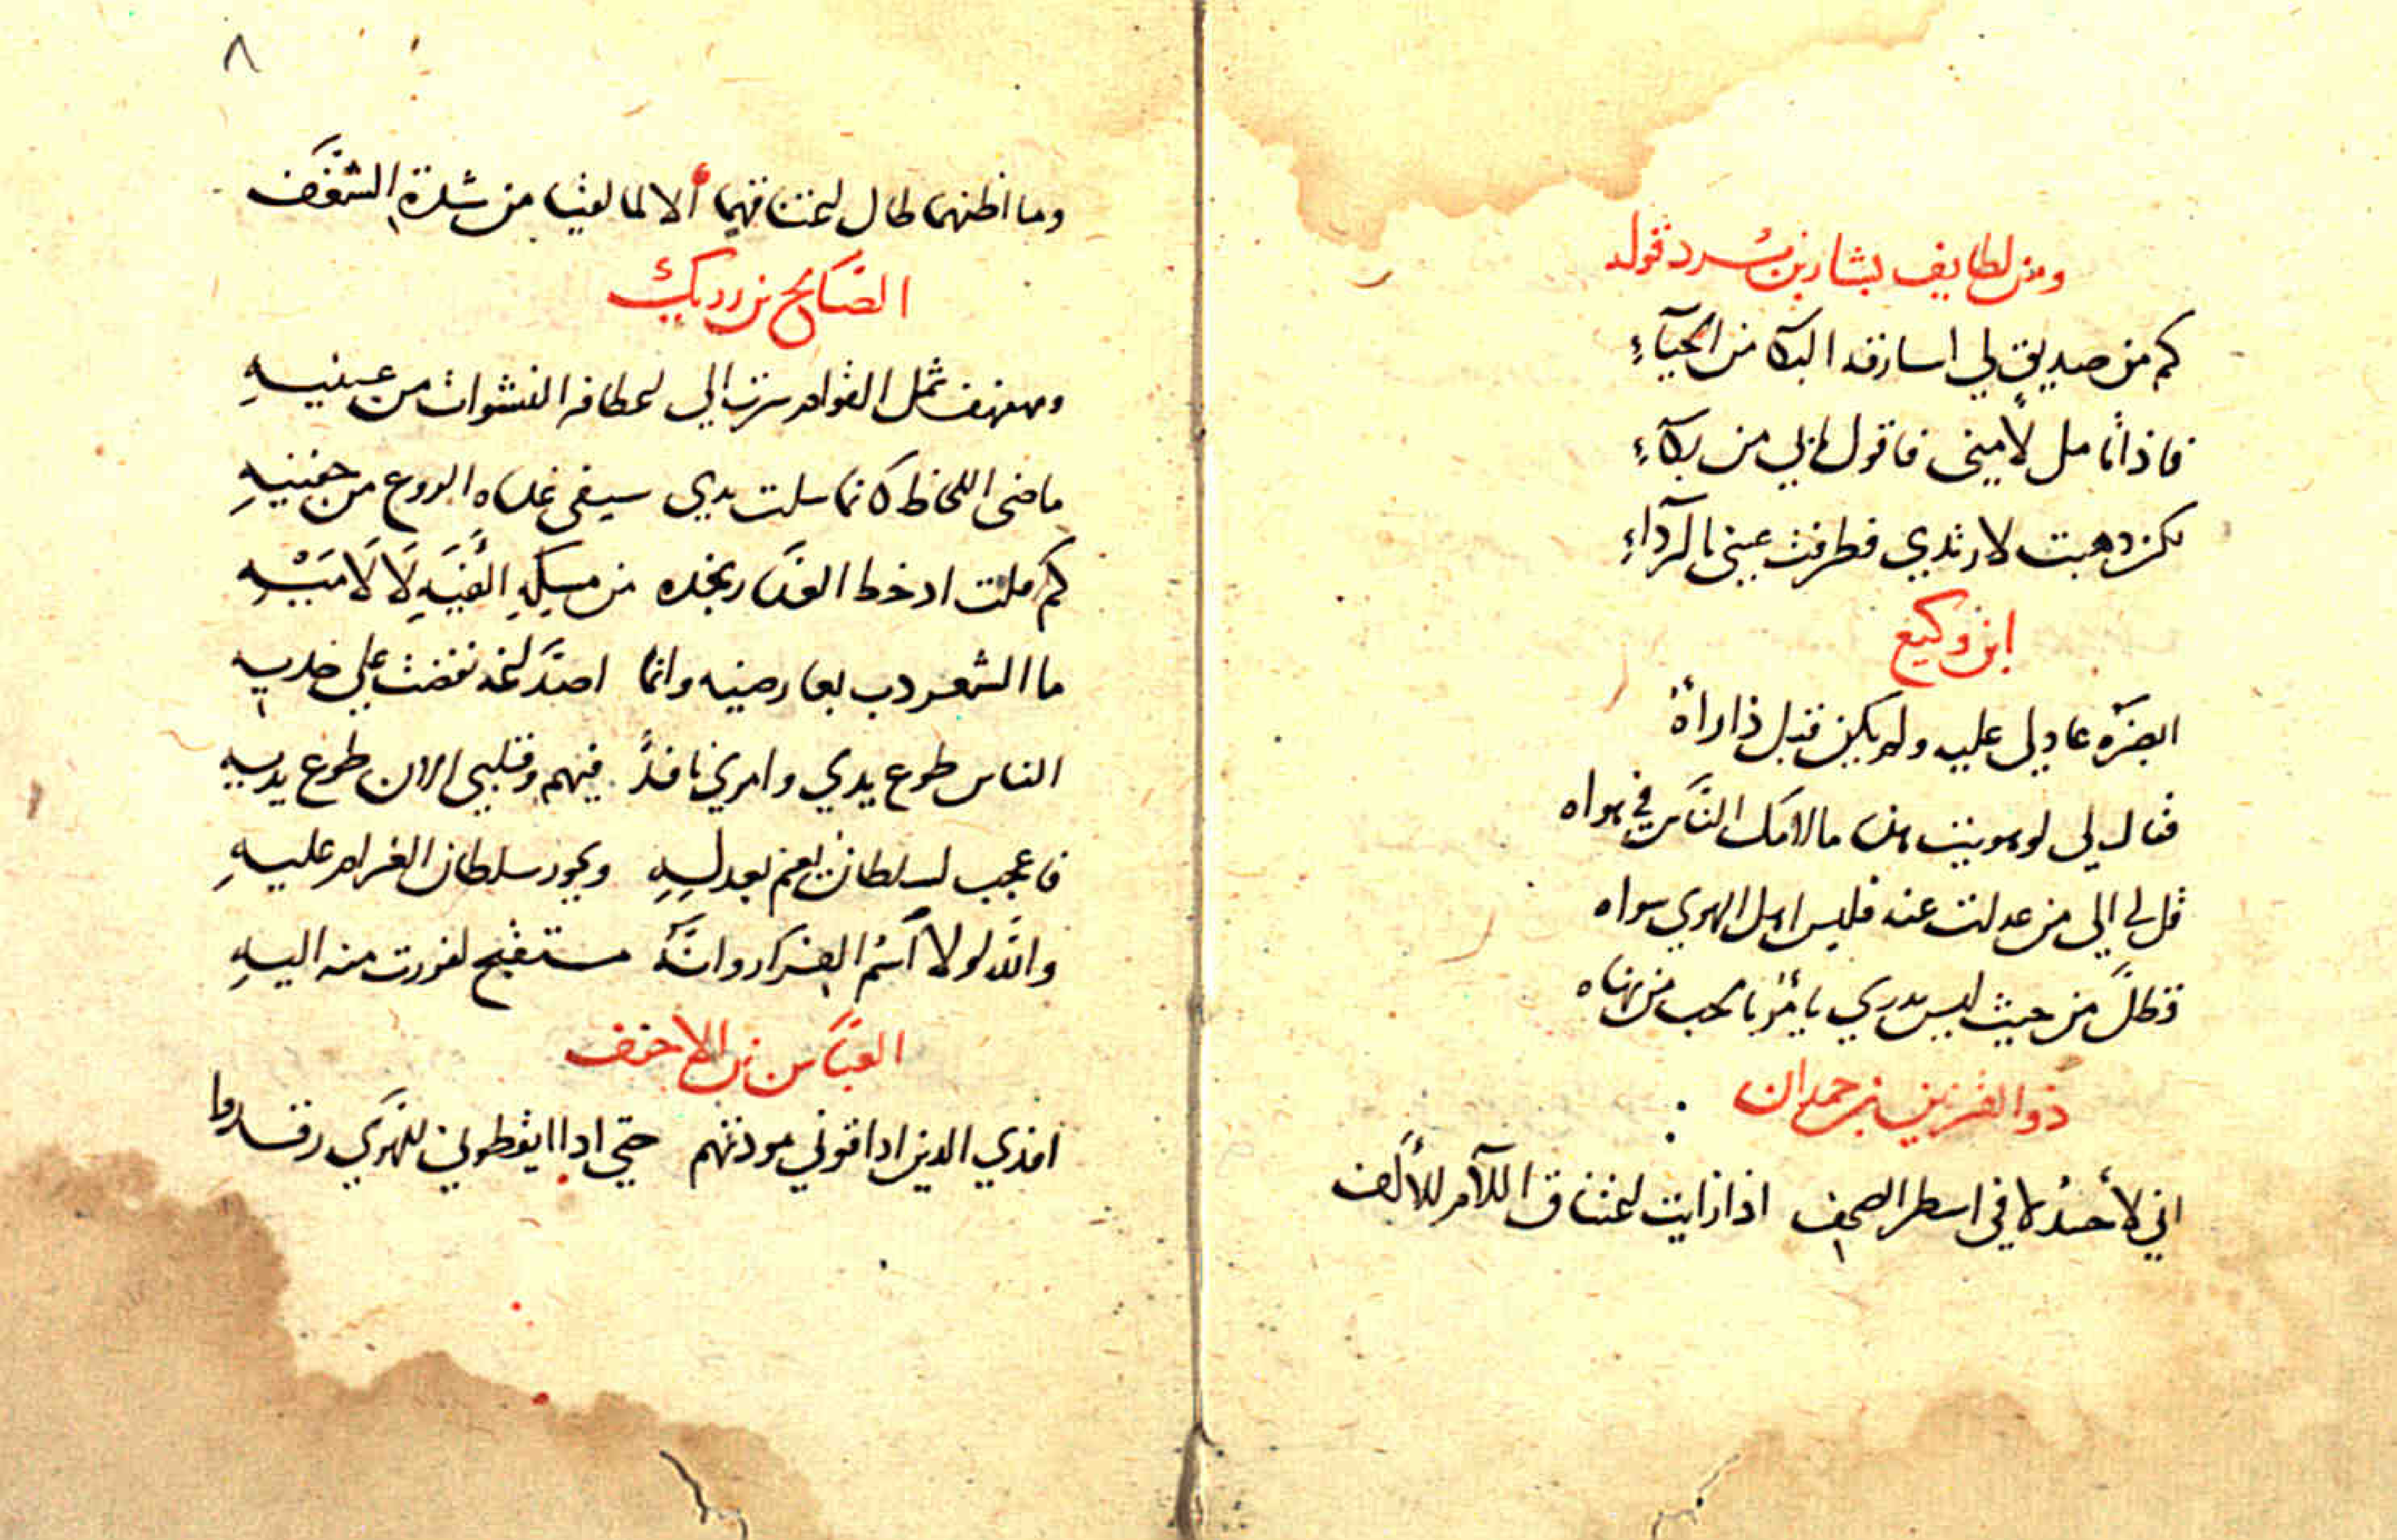 ومن لطايف بشار بن برد قوله
كم من صديق لي اسارقه البكا من الحيآءِ
فاذا تامل لامني فاقول مابي من بكآءِ
لكن ذهبت لارتدي فطرفت عيني بالردآءِ
ابن وكيع
ابصره عاذلي عليه ولم يكن قبل ذا رأه
فقال لي لو هويت هذا ما لامك الناس في هواه
قل لي الي من عدلت عنه فليس اهل الهوي سواه
فظل من حيث ليس يدري يأمر بالحب من نهاه
ذو القرنين بن حمدان
اني لأحسد لا في اسطر الصحف اذا رايت اعتناق اللام للألف
٨
وما اظنهما طال اعتناقهما الا لما لقيا من شدة الشغف
الصالح بن رزيك
ومهفهف ثمل القوام سرت الي اعطافه النشوات من عينيهِ
ماضي اللحاظ كانما سلت يدي سيفي غداه الروع من جفنيهِ
كم قلت اذ خط العذار بخده من مسكه الفيه لا لاميهِ
ما الشعر دب بعارضيه وانما اصداغه نفضت علي خديه
الناس طوع يدي وامري نافذ فيهم وقلبي الان طوع يديه
فاعجب لسلطان يعم بعدله ويجور سلطان الغرام عليهِ
والله لولا اسم الفرار وانه مستقبح لفررت منه اليهِ
العباس بن الاحنف
افدي الذين اذاقوني مودتهم حتي اذا ايقظوني للهوي رقدوا